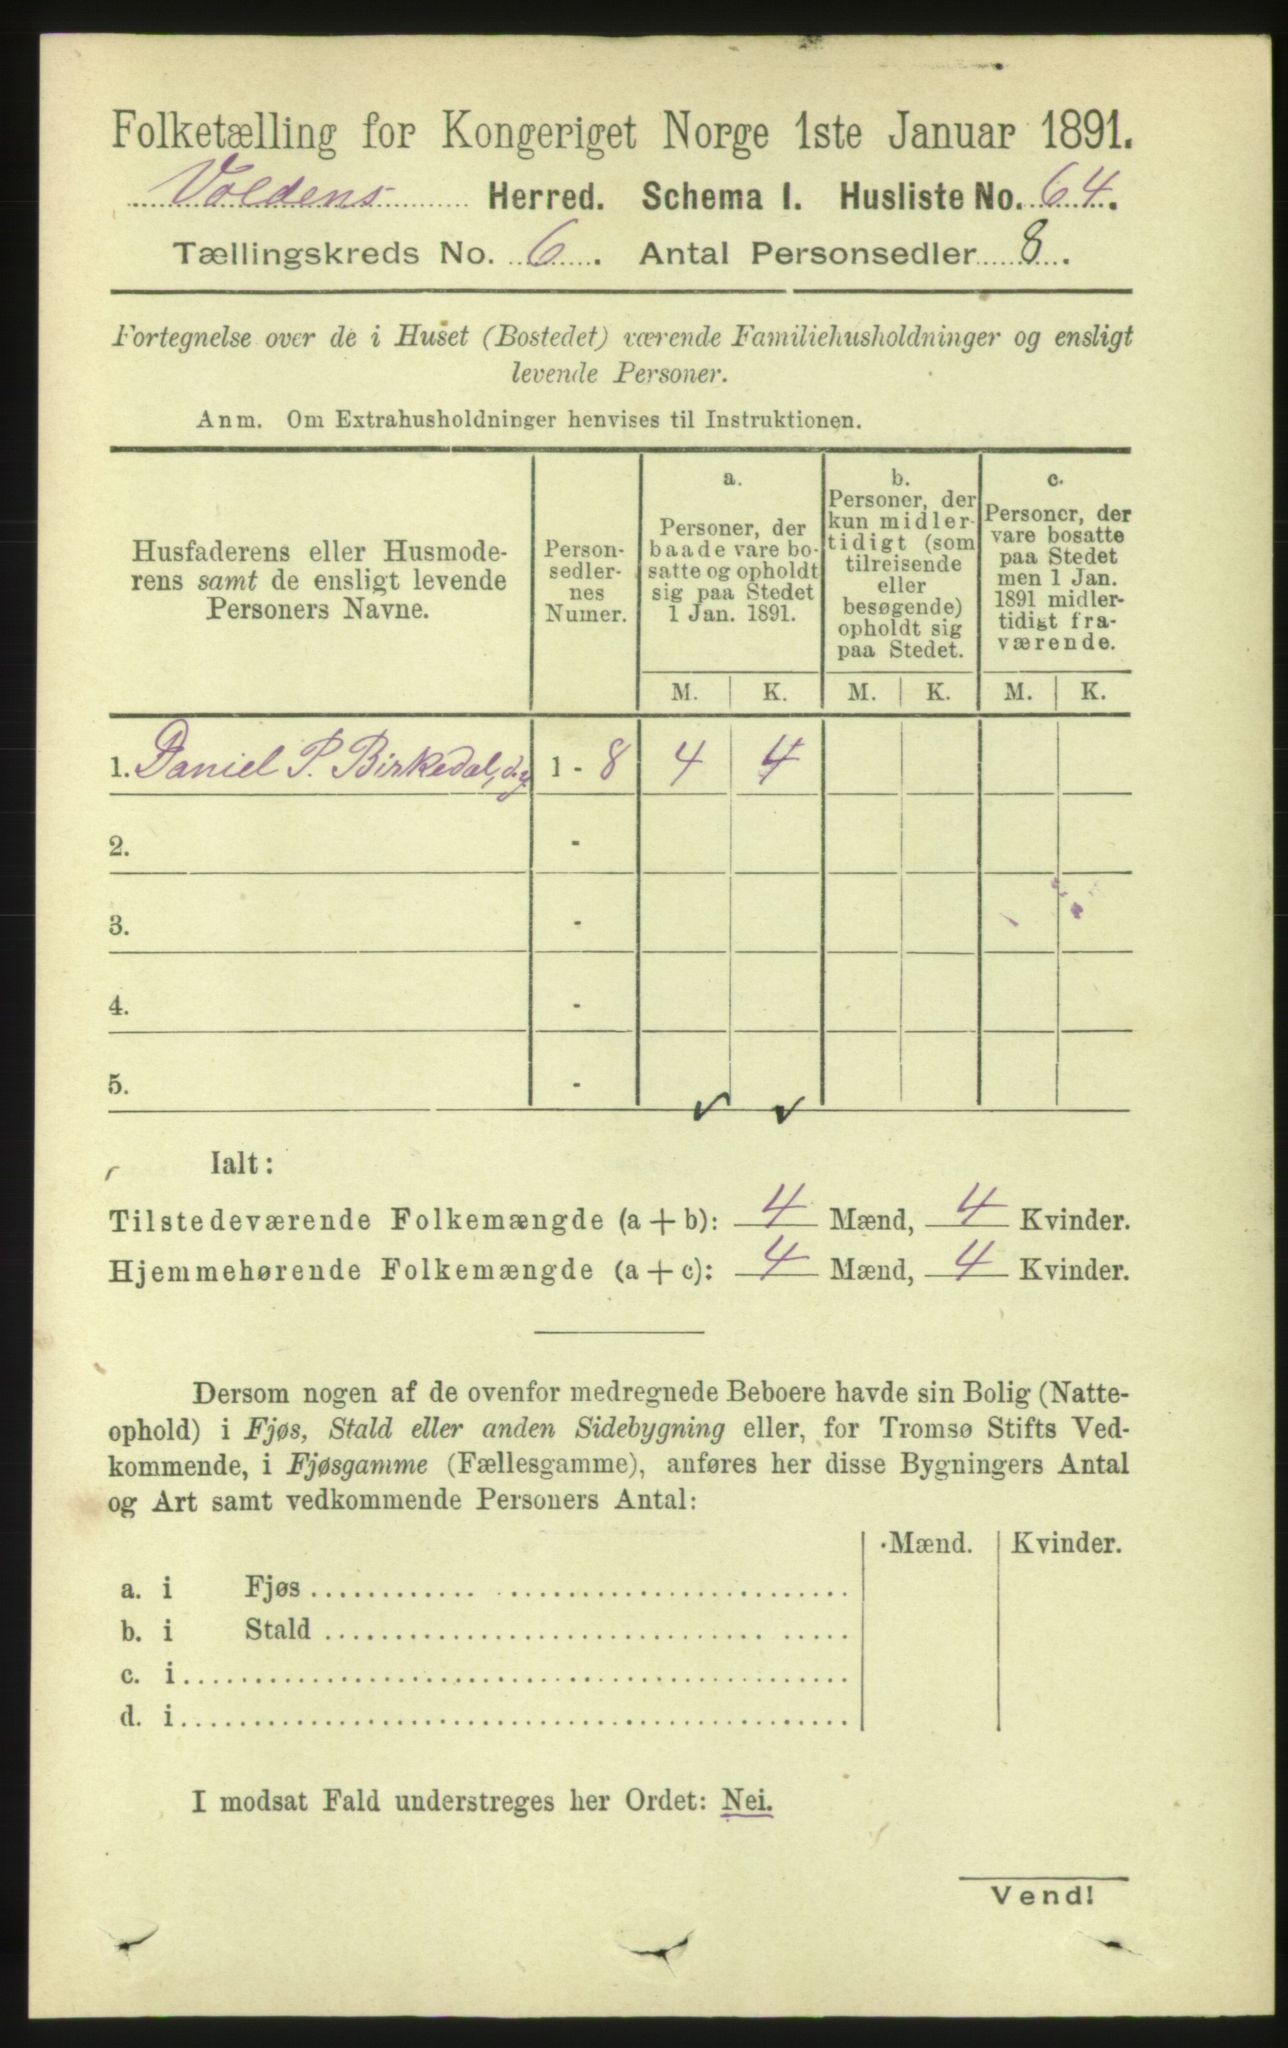 Folketælling for Kongeriget Norge 1ste Januar 1891.
Voldens Herred. Schema I. Husliste No. 64.
Tællingskreds No. 6. Antal Personsedler 8.
Fortegnelse over de i Huset (Bostedet) værende Familiehusholdninger og ensligt
levende Personer.
Anm. Om Extrahusholdninger henvises til Instruktionen.
Husfaderens eller Husmode-
rens samt de ensligt levende
Personers Navne.
Person-
sedler-
nes
Numer.
a.
Personer, der
baade vare bo-
satte og opholdt
sig paa Stedet
1 Jan. 1891.
b.
Personer, der
kun midler-
tidigt (som
tilreisende
eller
besøgende)
opholdt sig
paa Stedet.
c.
Personer, der
vare bosatte
paa Stedet
men 1 Jan.
1891 midler-
tidigt fra-
værende.
M. K. M. K. M. K.
1. Daniel P. Birkedal, d.y. 1 - 8 4 4
2. -
3. -
4. -
5. -
Ialt:
Tilstedeværende Folkemængde (a + b): 4 Mænd, 4 Kvinder.
Hjemmehørende Folkemængde (a + c): 4 Mænd, 4 Kvinder.
Dersom nogen af de ovenfor medregnede Beboere havde sin Bolig (Natte-
ophold) i Fjøs, Stald eller anden Sidebygning eller, for Tromsø Stifts Ved-
kommende, i Fjøsgamme (Fællesgamme), anføres her disse Bygningers Antal
og Art samt vedkommende Personers Antal:
Mænd. Kvinder.
a. i Fjøs
b. i Stald
c. i
d. i
I modsat Fald understreges her Ordet: Nei.
Vend!